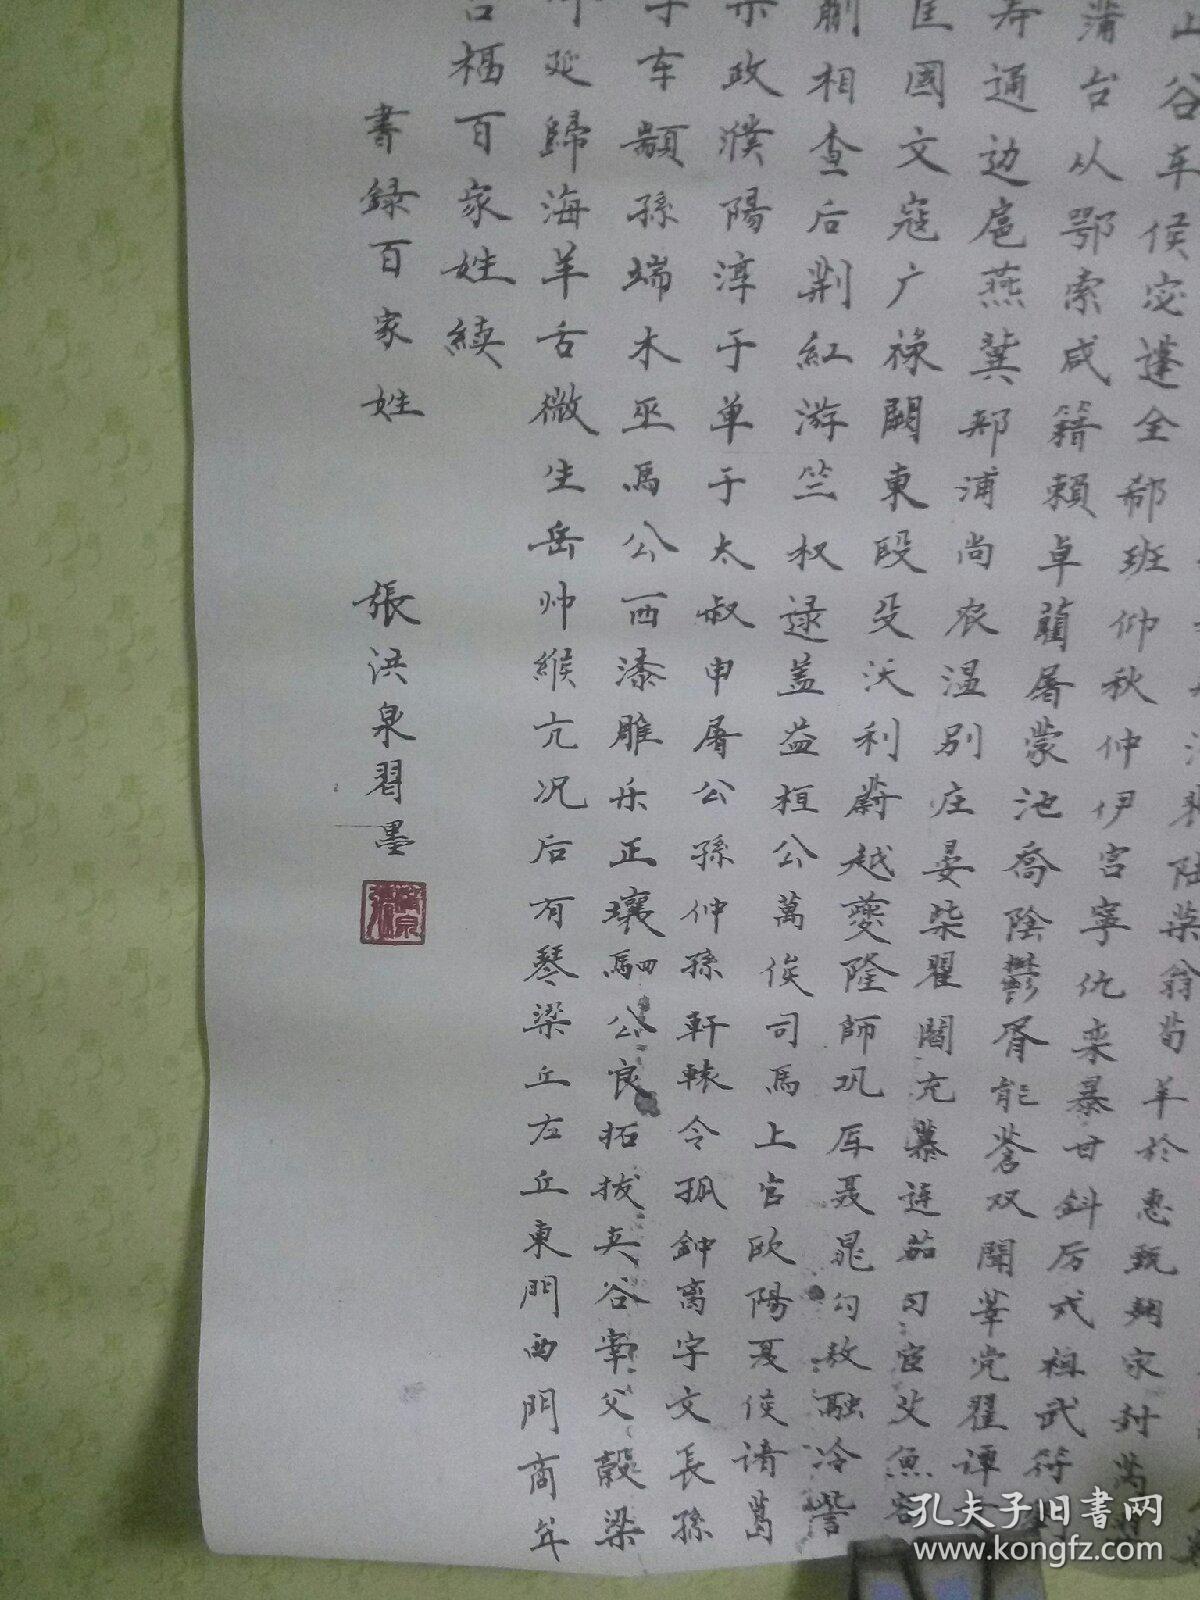 山谷车侯宓蓬全郗班仰秋仲伊宫寧仇栾暴甘斜厉戎祖武符
蒲台从鄂索咸籍賴卓藺屠蒙池喬陰鬱胥能蒼双聞莘党翟譚
寿通边扈燕冀郏浦尚农温别庄晏柴瞿閻充慕连茹习宦艾魚容
匡國文寇广禄闕東殴殳沃利蔚越夔隆師巩厍聂晁勾敖融冷訾
蒯相查后荆紅游竺权逯盖益桓公萬俟司馬上官欧陽夏侯诸葛
宗政濮陽淳于单于太叔申屠公孫仲孫軒轅令狐鈡离宇文長孫
车颛孫端木巫馬公西漆雕乐正壤駟公良拓拔夹谷宰父穀梁
延歸海羊舌微生岳帅緱亢况后有琴梁丘左丘東門西門商牟
福百家姓續
書録百家姓
張洪泉習墨
孔夫子旧书网
www.kongfz.com